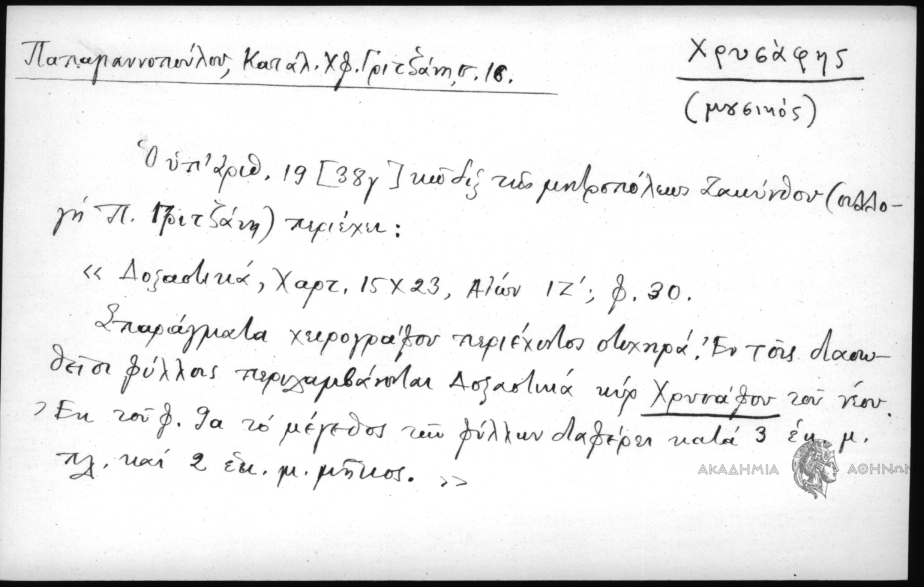 Χρυσάφης
Παπαγιαννοπούλου, Καταλ. Χφ. Γριτζάνη, σ. 16.
(μουσικός)
Ὁ ὑπ' ἀριθ. 19 [38γ] κῶδιξ τῆς μητροπόλεως Ζακύνθου (συλλο-
γή Π. Γριτζάνη) περιέχει:
« Δοξαστικά, Χαρτ. 15 Χ 23, Αἰών ΙΖ´, φ. 30.
Σπαράγματα χειρογράφου περιέχοντος στιχηρά. Ἐν τοῖς διασω-
θεῖσι φύλλοις περιλαμβάνονται Δοξαστικά κύρ Χρυσάφου τοῦ νέου.
Ἐκ τοῦ φ. 9α τό μέγεθος τῶν φύλλων διαφέρει κατά 3 ἑκ. μ.
πλ. καί 2 ἑκ. μ. μῆκος. »
ΑΚΑΔΗΜΙΑ ΑΘΗΝΩΝ